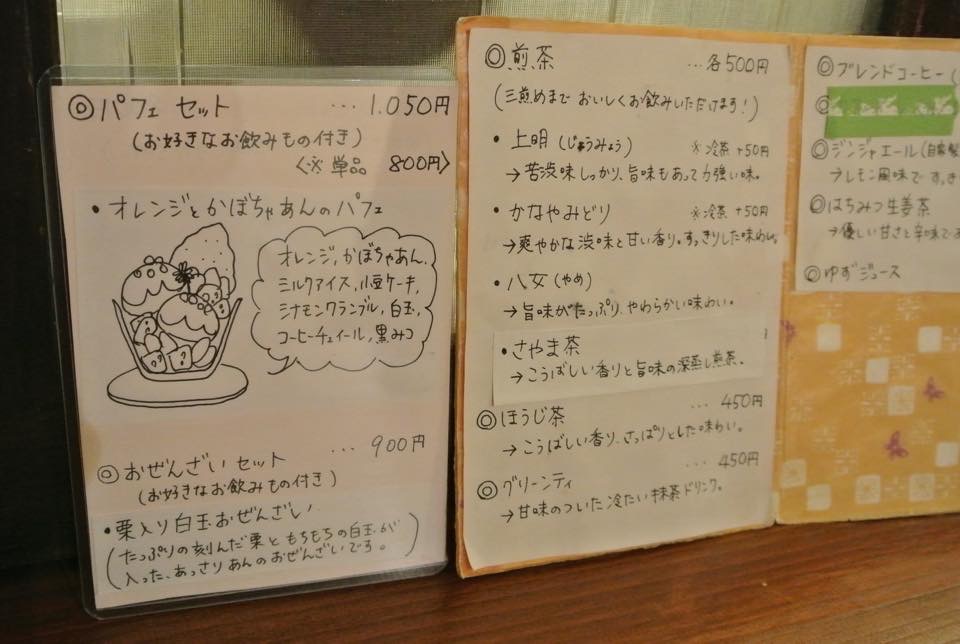 ◎パフェ セット ・・・1.050円
(お好きなお飲みもの付き)
〈※単品 800円〉
・オレンジとかぼちゃあんのパフェ
オレンジ,かぼちゃあん,
ミルクアイス,小豆ケーキ,
シナモンクランブル,白玉,
コーヒーチュイール,黒みつ
・・・900円
◎おぜんざいセット
(お好きなお飲みもの付き)
・栗入り白玉おぜんざい
(たっぷりの刻んだ栗ともちもちの白玉が
入った、あっさりあんのおぜんざいです。)
◎煎茶 ・・・各500円
(三煎めまで おいしくお飲みいただけます!)
・上明(じょうみょう) ※冷茶+50円
→苦渋味しっかり、旨味もあって力強い味。
・かなやみどり ※冷茶+50円
→爽やかな渋味と甘い香り。すっきりした味わい。
・八女(やめ)
→旨味がたっぷり、やわらかい味わい。
・さやま茶
→こうばしい香りと旨味の深蒸し煎茶。
・・・450円
◎ほうじ茶
→こうばしい香り、さっぱりとした味わい。
・・・450円
◎グリーンティ
→甘味のついた冷たい抹茶ドリンク。
◎ブレンドコーヒー(
◎ジンジャエール(自家製
→レモン風味で すっき
◎はちみつ生姜茶
→優しい甘さと辛味で
◎ゆずジュース